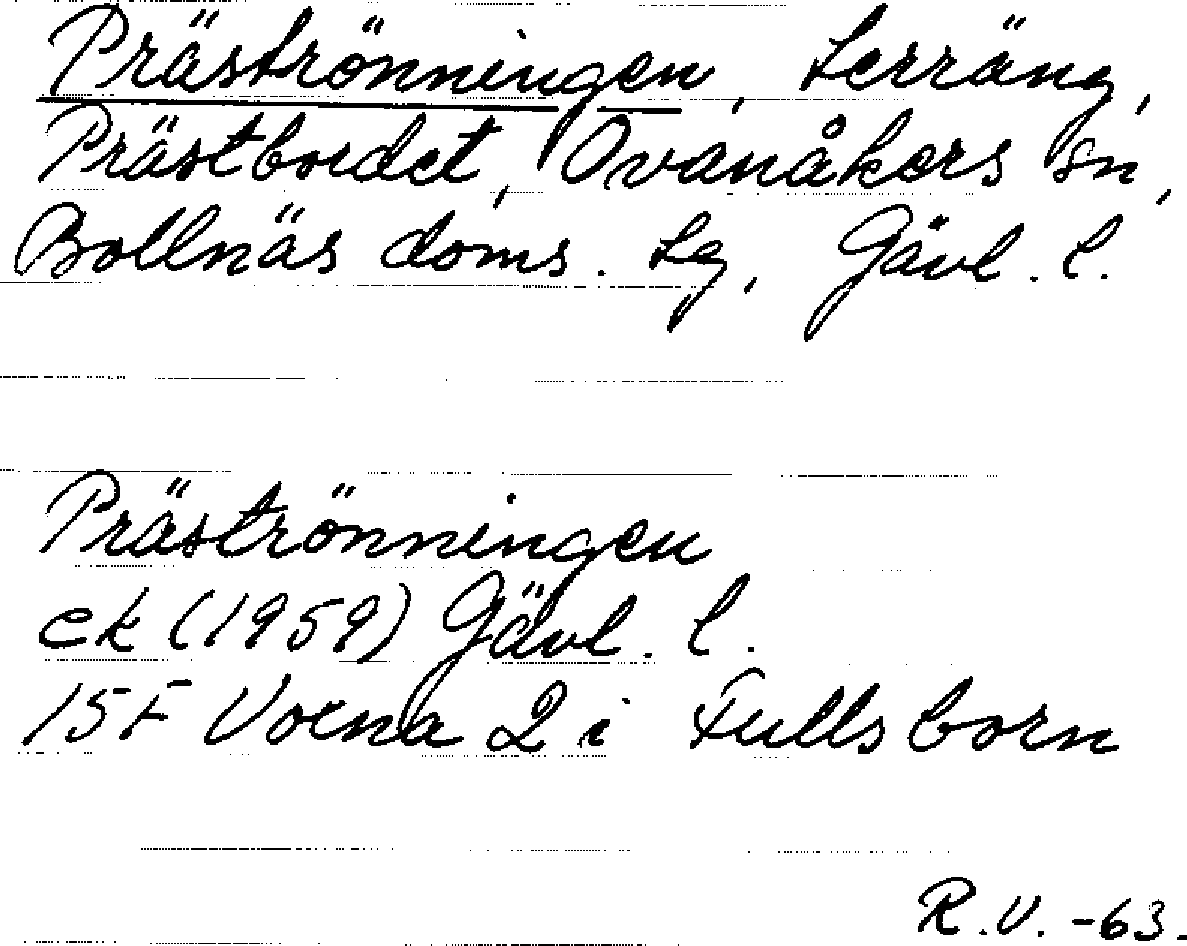 Präströnningen, terräng,
Prästbordet, Ovanåkers sn,
Bollnäs doms. tg, Gävl. l.
Präströnningen
ek (1959) Gävl. l.
15F Voxna 2 i Fullsborn
R.V. -63.